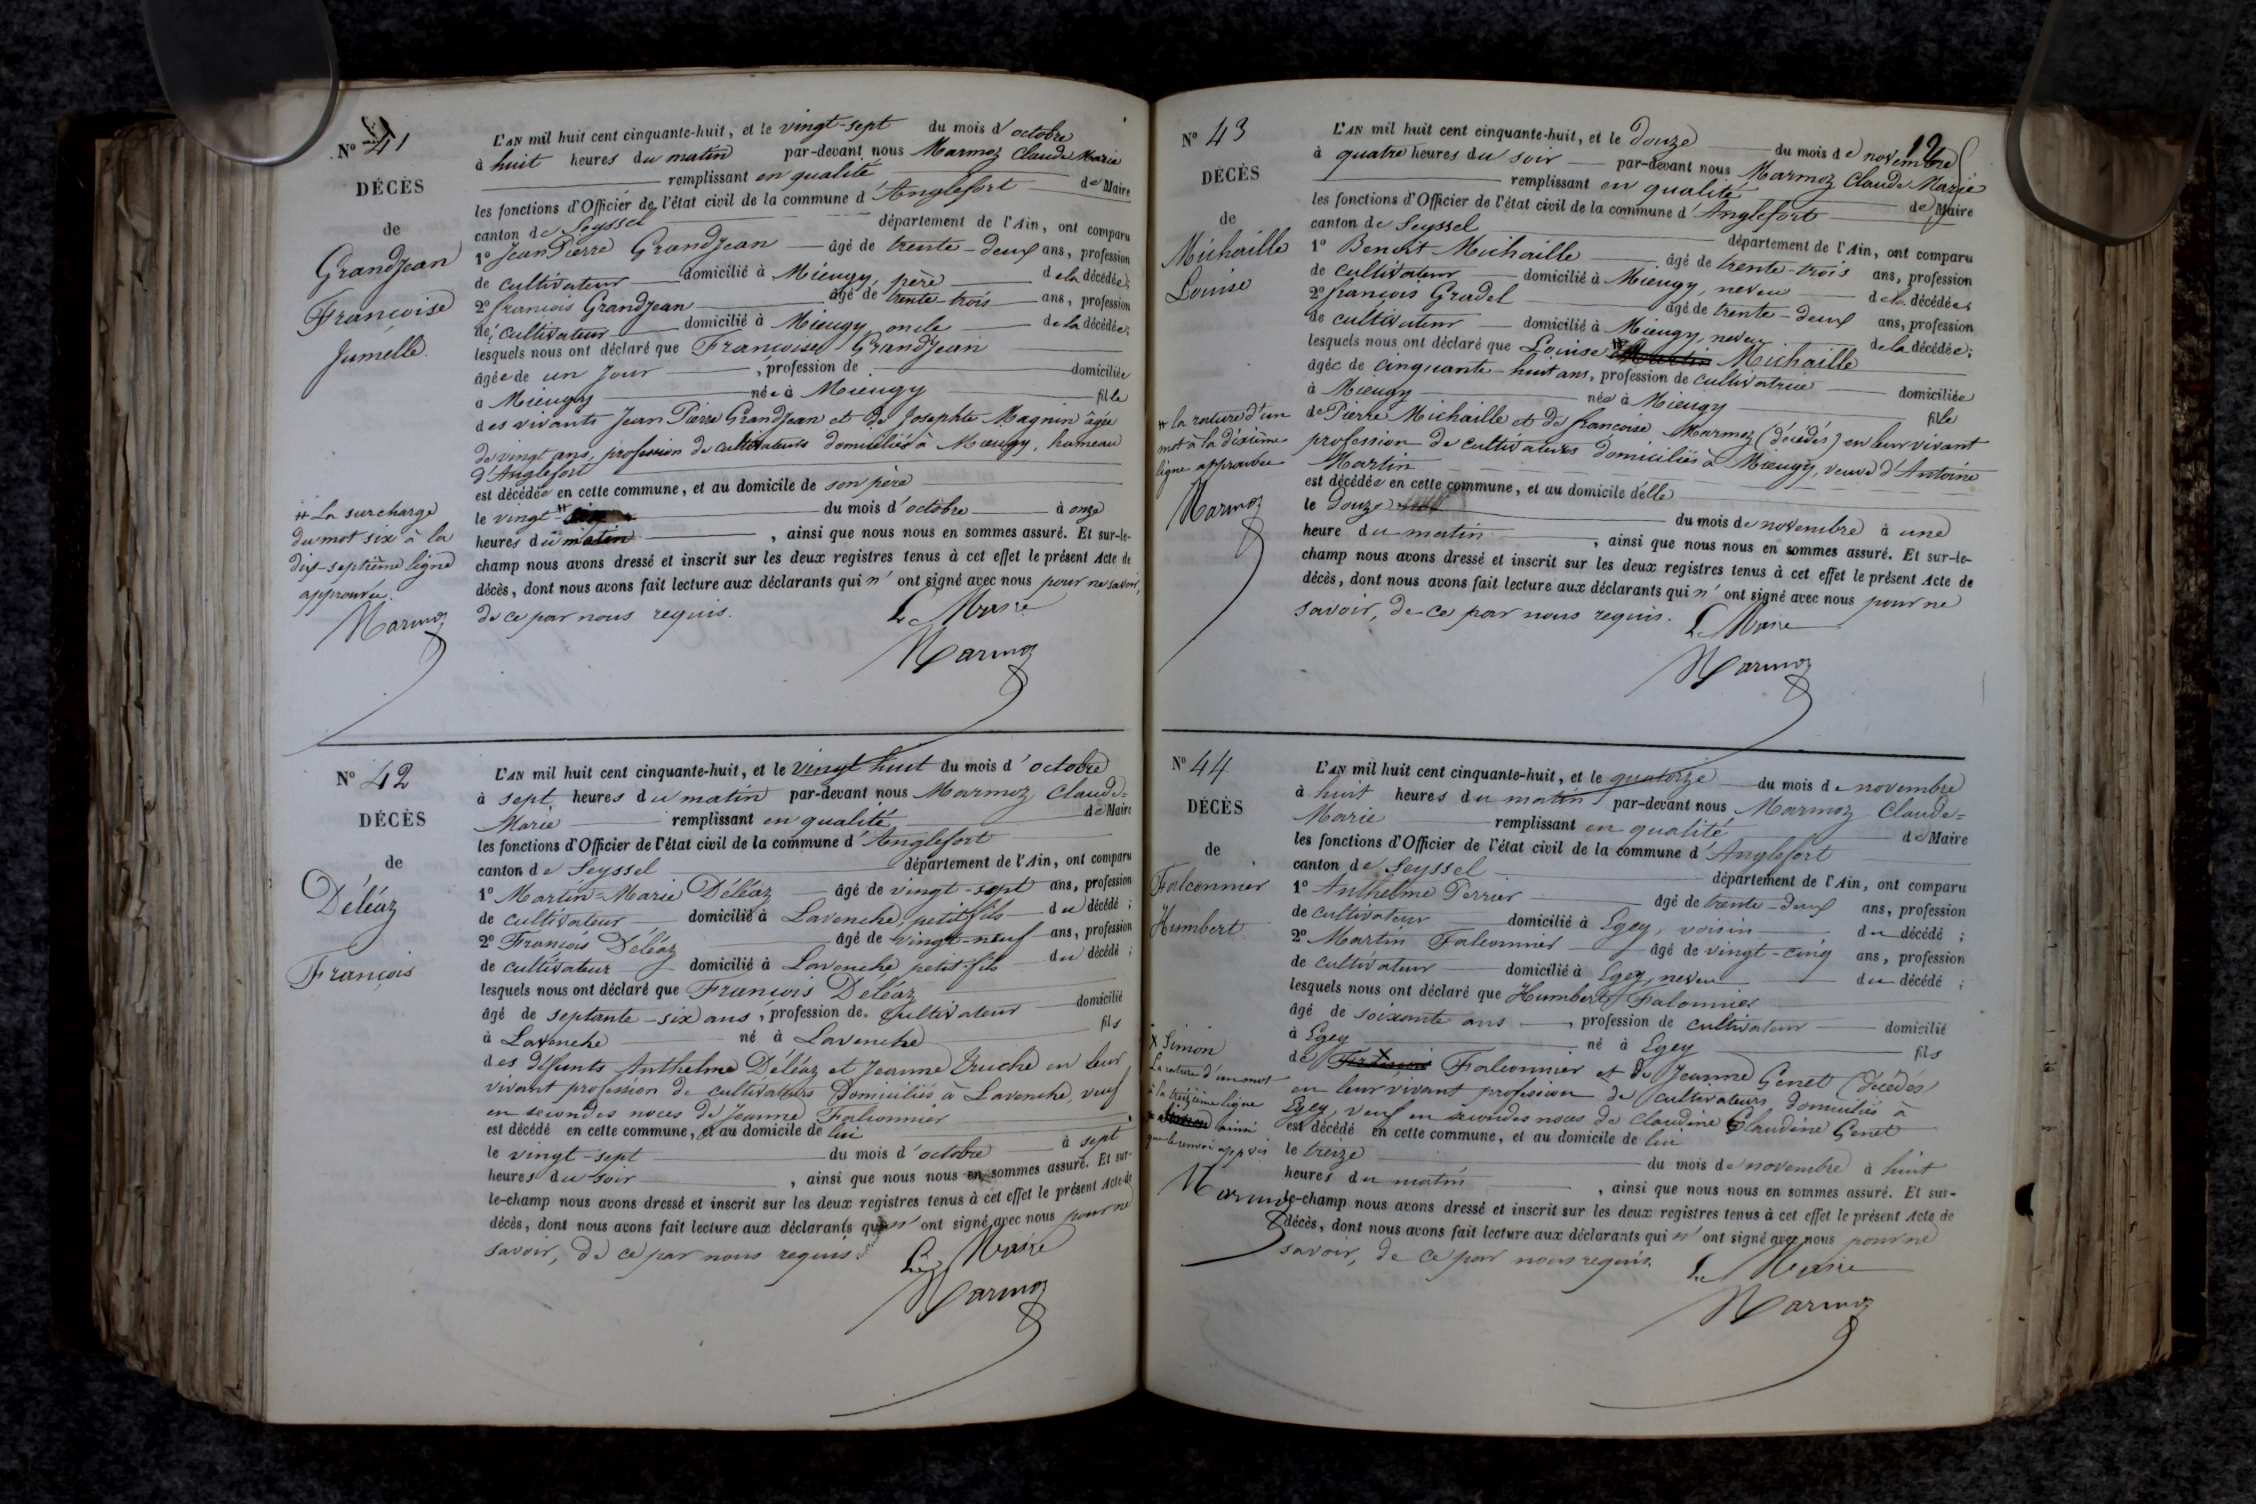 N° 41
DÉCÈS
de
Grandjean
Françoise
Jumelle.
L'AN mil huit cent cinquante-huit, et le vingt-sept du mois d'octobre
à huit heures du matin par-devant nous Marmoz Claude Marie
remplissant en qualité de Maire
les fonctions d'Officier de l'état civil de la commune d'Anglefort
canton de Seyssel département de l'Ain, ont comparu
1° Jean Pierre Grandjean âgé de trente-deux ans, profession
de cultivateur domicilié à Mieugy, père de la décédée;
2° françois Grandjean âgé de trente-trois ans, profession
de cultivateur domicilié à Mieugy, oncle de la décédée;
lesquels nous ont déclaré que Françoise Grandjean
âgée de un jour, profession de domiciliée
à Mieugy née à Mieugy fille
des vivants Jean Pierre Grandjean et de Josephte Magnin âgée
de vingt ans, profession de cultivateurs domiciliés à Mieugy, hameau
d'Anglefort
est décédée en cette commune, et au domicile de son père
le vingt-# du mois d'octobre à onze
heures du matin, ainsi que nous nous en sommes assuré. Et sur-le-
champ nous avons dressé et inscrit sur les deux registres tenus à cet effet le présent Acte de
décès, dont nous avons fait lecture aux déclarants qui n'ont signé avec nous pour ne savoir,
de ce par nous requis. Le Maire
Marmoz
# La surcharge
du mot six à la
dix-septième ligne
approuvée.
Marmoz
N° 42
DÉCÈS
de
Déléaz
François
L'AN mil huit cent cinquante-huit, et le vingt huit du mois d'octobre
à sept heures du matin par-devant nous Marmoz Claude=
Marie remplissant en qualité de Maire
les fonctions d'Officier de l'état civil de la commune d'Anglefort
canton de Seyssel département de l'Ain, ont comparu
1° Martin=Marie Déléaz âgé de vingt-sept ans, profession
de cultivateur domicilié à Lavenche, petit fils du décédé;
2° François Déléaz âgé de vingt-neuf ans, profession
de cultivateur domicilié à Lavenche petit-fils du décédé;
lesquels nous ont déclaré que François Déléaz
âgé de septante-six ans, profession de cultivateur domicilié
à Lavenche né à Lavenche fils
des défunts Anthelme Déléaz et Jeanne Truche en leur
vivant profession de cultivateurs domiciliés à Lavenche, veuf
en secondes noces de Jeanne Falconnier
est décédé en cette commune, et au domicile de lui
le vingt-sept du mois d'octobre à sept
heures du soir, ainsi que nous nous en sommes assuré. Et sur-
le-champ nous avons dressé et inscrit sur les deux registres tenus à cet effet le présent Acte de
décès, dont nous avons fait lecture aux déclarants qui n'ont signé avec nous pour ne
savoir, de ce par nous requis. Le Maire
Marmoz
12
N° 43
DÉCÈS
de
Michaille
Louise
L'AN mil huit cent cinquante-huit, et le douze du mois de novembre
à quatre heures du soir par-devant nous Marmoz Claude Marie
remplissant en qualité de Maire
les fonctions d'Officier de l'état civil de la commune d'Anglefort
canton de Seyssel département de l'Ain, ont comparu
1° Benoit Michaille âgé de trente-trois ans, profession
de cultivateur domicilié à Mieugy, neveu de la décédée;
2° françois Gradel âgé de trente-deux ans, profession
de cultivateur domicilié à Mieugy, neveu de la décédée;
lesquels nous ont déclaré que Louise # Martin Michaille
âgée de cinquante-huit ans, profession de cultivatrice domiciliée
à Mieugy née à Mieugy fille
de Pierre Michaille et de françoise Marmoz (décédés) en leur vivant
profession de cultivateurs domiciliés à Mieugy, veuve d'Antoine
Martin
est décédée en cette commune, et au domicile d'elle
le douze du mois de novembre à une
heure du matin, ainsi que nous nous en sommes assuré. Et sur-le-
champ nous avons dressé et inscrit sur les deux registres tenus à cet effet le présent Acte de
décès, dont nous avons fait lecture aux déclarants qui n'ont signé avec nous pour ne
savoir, de ce par nous requis. Le Maire
Marmoz
# la rature d'un
mot à la dixième
ligne approuvée
Marmoz
N° 44
DÉCÈS
de
Falconnier
Humbert
L'AN mil huit cent cinquante-huit, et le quatorze du mois de novembre
à huit heures du matin par-devant nous Marmoz Claude=
Marie remplissant en qualité de Maire
les fonctions d'Officier de l'état civil de la commune d'Anglefort
canton de Seyssel département de l'Ain, ont comparu
1° Anthelme Perrier âgé de trente-deux ans, profession
de cultivateur domicilié à Egey, voisin du décédé;
2° Martin Falconnier âgé de vingt-cinq ans, profession
de cultivateur domicilié à Egey, neveu du décédé;
lesquels nous ont déclaré que Humbert Falconnier
âgé de soixante ans, profession de cultivateur domicilié
à Egey né à Egey fils
de François Falconnier et de Jeanne Genet (décédés)
en leur vivant profession de cultivateurs domiciliés à
Egey, veuf en secondes noces de Claudine Claudine Genet
est décédé en cette commune, et au domicile de lui
le treize du mois de novembre à huit
heures du matin, ainsi que nous nous en sommes assuré. Et sur-
le-champ nous avons dressé et inscrit sur les deux registres tenus à cet effet le présent Acte de
décès, dont nous avons fait lecture aux déclarants qui n'ont signé avec nous pour ne
savoir, de ce par nous requis. Le Maire
Marmoz
x Simon
La rature d'un mot
à la treizième ligne
ainsi
que le renvoi
Marmoz